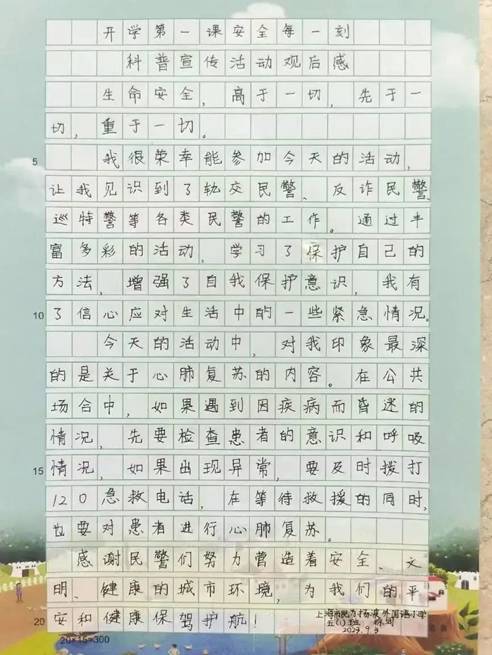 开学第一课安全每一刻
科普宣传活动观后感
生命安全,高于一切,先于一
切,重于一切。
5 我很荣幸能参加今天的活动,
让我见识到了轨交民警、反诈民警、
巡特警等各类民警的工作。通过丰
富多彩的活动,学习了保护自己的
方法,增强了自我保护意识,我有
10 了信心应对生活中的一些紧急情况。
今天的活动中,对我印象最深
的是关于心肺复苏的内容。在公共
场合中,如果遇到因疾病而昏迷的
情况,先要检查患者的意识和呼吸
15 情况,如果出现异常,要及时拨打
120急救电话,在等待救援的同时,
也要对患者进行心肺复苏。
感谢民警们努力营造着安全、文
明、健康的城市环境,为我们的平
20 安和健康保驾护航!
外国语小学
五(1)班
2023.9.3
20×15=300